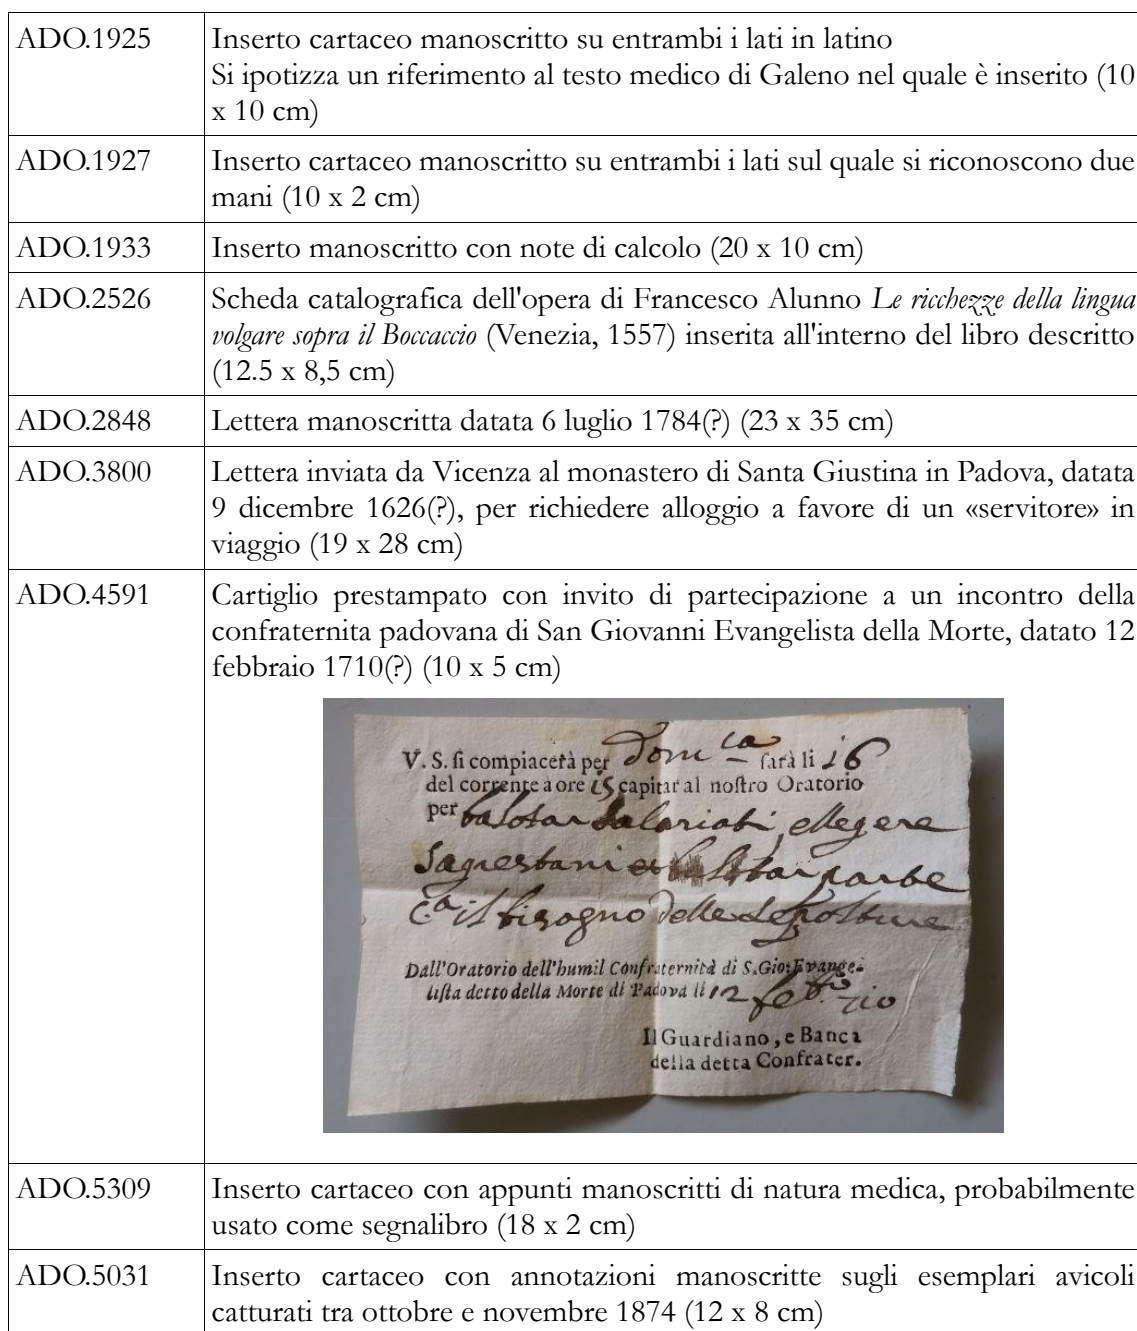 ADO.1925
Inserto cartaceo manoscritto su entrambi i lati in latino
Si ipotizza un riferimento al testo medico di Galeno nel quale è inserito (10
x 10 cm)
ADO.1927
Inserto cartaceo manoscritto su entrambi i lati sul quale si riconoscono due
mani (10 x 2 cm)
ADO.1933
Inserto manoscritto con note di calcolo (20 x 10 cm)
ADO.2526
Scheda catalografica dell'opera di Francesco Alunno Le ricchezze della lingua
volgare sopra il Boccaccio (Venezia, 1557) inserita all'interno del libro descritto
(12.5 x 8,5 cm)
ADO.2848
Lettera manoscritta datata 6 luglio 1784(?) (23 x 35 cm)
ADO.3800
Lettera inviata da Vicenza al monastero di Santa Giustina in Padova, datata
9 dicembre 1626(?), per richiedere alloggio a favore di un «servitore» in
viaggio (19 x 28 cm)
ADO.4591
Cartiglio prestampato con invito di partecipazione a un incontro della
confraternita padovana di San Giovanni Evangelista della Morte, datato 12
febbraio 1710(?) (10 x 5 cm)
V. S. ſi compiacerà per Domca ſarà li 16
del corrente a ore 15 capitar al noſtro Oratorio
per balotar salariati, elegere
sagrestani et parte
ca il bisogno delle sepolture
Dall'Oratorio dell'humil Confraternità di S. Gio: Evange-
liſta detto della Morte di Padova li 12 febro 710
Il Guardiano, e Banca
della detta Confrater.
ADO.5309
Inserto cartaceo con appunti manoscritti di natura medica, probabilmente
usato come segnalibro (18 x 2 cm)
ADO.5031
Inserto cartaceo con annotazioni manoscritte sugli esemplari avicoli
catturati tra ottobre e novembre 1874 (12 x 8 cm)